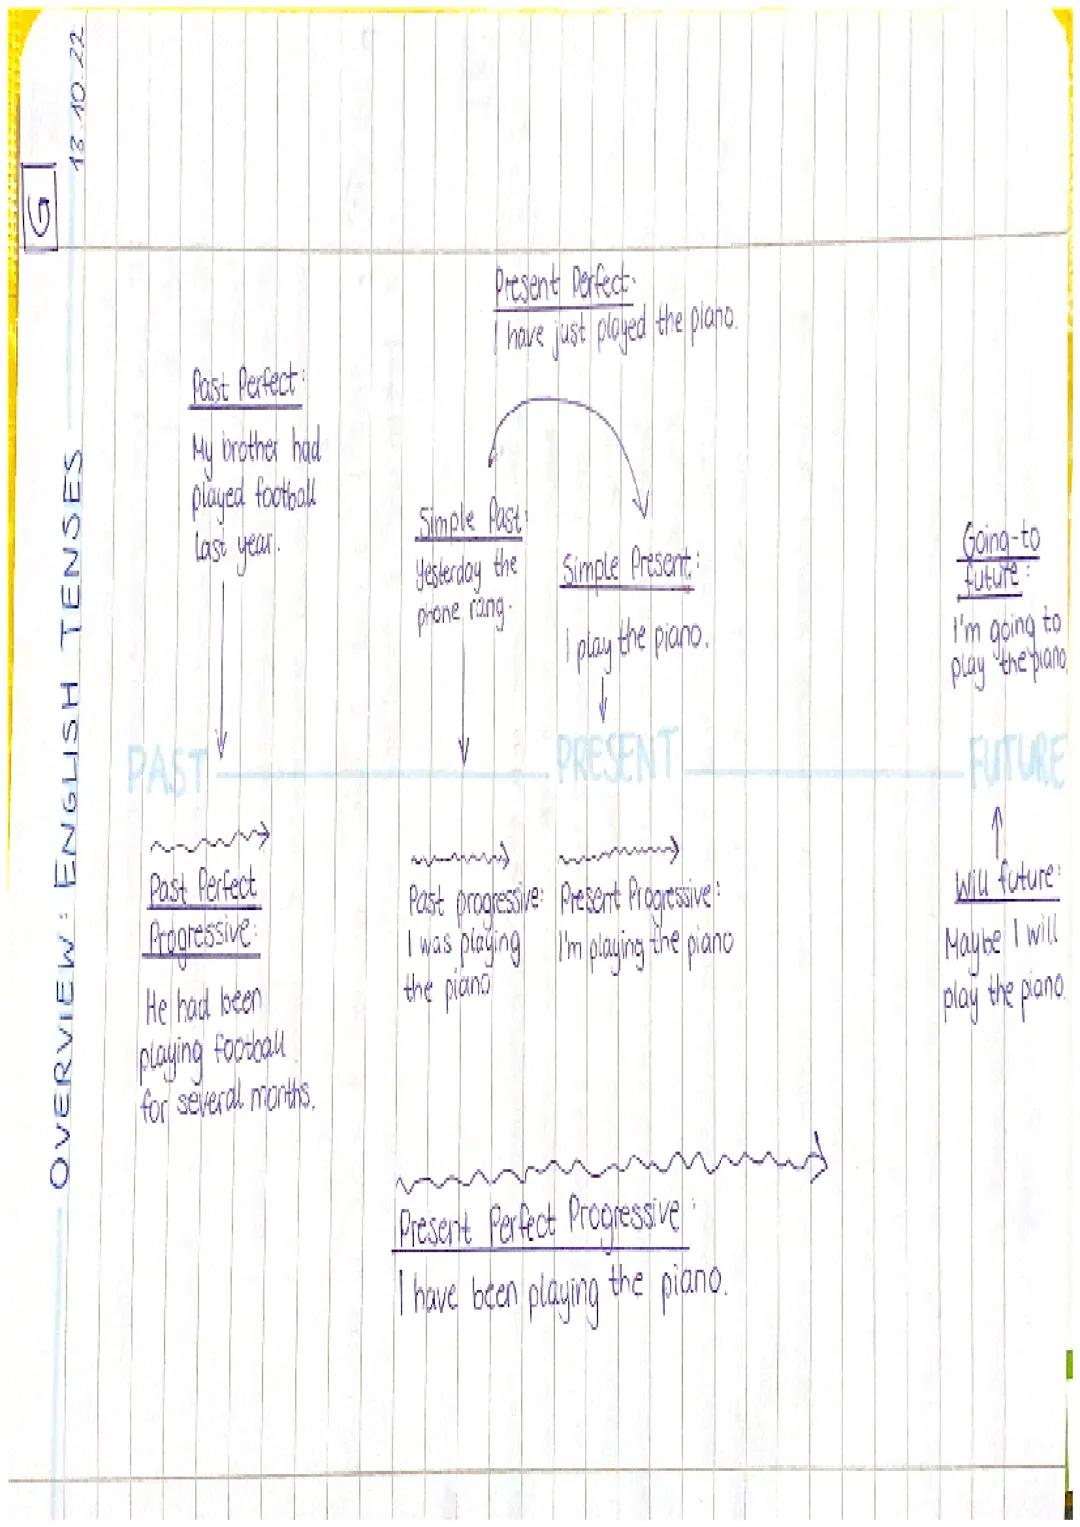 G
OVERVIEW: ENGLISH TENSES
13.10.22
Present Perfect:
I have just played the piano.
Past Perfect:
My brother had
played football
last year.
Simple Past:
Yesterday the
phone rang.
Simple Present:
I play the piano.
Going-to
future:
I'm going to
play the piano
PAST
PRESENT
FUTURE
Past Perfect
Progressive:
He had been
playing football
for several months.
Past progressive:
I was playing
the piano
Present Progressive:
I'm playing the piano
Will future:
Maybe I will
play the piano.
Present Perfect Progressive:
I have been playing the piano.